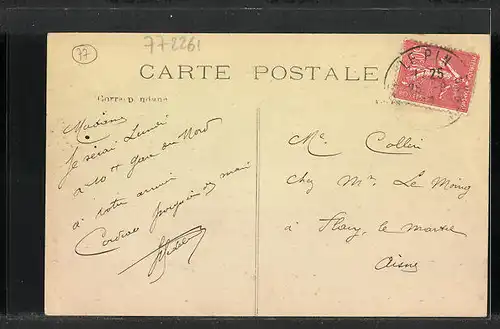 77
772261
CARTE POSTALE
Correspondance
Madame
Je serai Lundi
à 10 H gare du Nord
à votre arrivée
Cordiale
Me Collin
chez Mr Le Moing
à Flavy le martel
Aisne